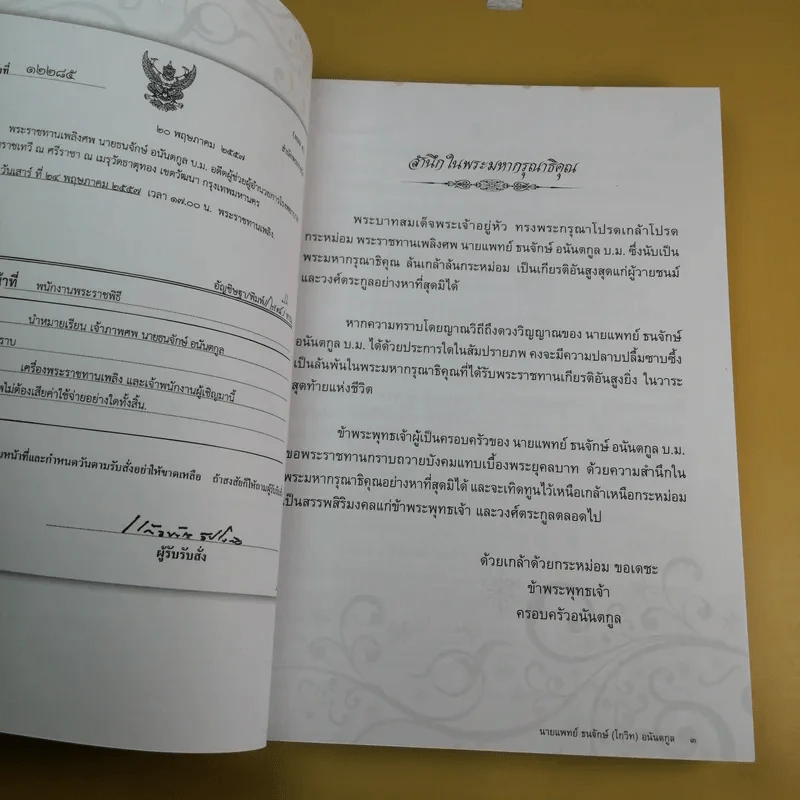 ที่ ๑๒๒๘๕
๒๐ พฤษภาคม ๒๕๕๗
พระราชทานเพลิงศพ นายธนจักษ์ อนันตกูล บ.ม. อดีตผู้ช่วยผู้อำนวยการ
ราชเทวี ณ ศรีราชา ณ เมรุวัดธาตุทอง เขตวัฒนา กรุงเทพมหานคร
วันเสาร์ ที่ ๒๔ พฤษภาคม ๒๕๕๗ เวลา ๑๗.๐๐ น. พระราชทานเพลิง
พนักงานพระราชพิธี
นำหมายเรียน เจ้าภาพศพ นายธนจักษ์ อนันตกูล
ราบ
เครื่องพระราชทานเพลิง และเจ้าพนักงานผู้เชิญมานี้
พไม่ต้องเสียค่าใช้จ่ายอย่างใดทั้งสิ้น.
มหน้าที่และกำหนดวันตามรับสั่งอย่าให้ขาดเหลือ ถ้าสงสัยก็ให้ถามผู้รับรับสั่ง
ผู้รับรับสั่ง
สำนึกในพระมหากรุณาธิคุณ
พระบาทสมเด็จพระเจ้าอยู่หัว ทรงพระกรุณาโปรดเกล้าโปรด
กระหม่อม พระราชทานเพลิงศพ นายแพทย์ ธนจักษ์ อนันตกูล บ.ม. ซึ่งนับเป็น
พระมหากรุณาธิคุณ ล้นเกล้าล้นกระหม่อม เป็นเกียรติอันสูงสุดแก่ผู้วายชนม์
และวงศ์ตระกูลอย่างหาที่สุดมิได้
หากความทราบโดยญาณวิถีถึงดวงวิญญาณของ นายแพทย์ ธนจักษ์
อนันตกูล บ.ม. ได้ด้วยประการใดในสัมปรายภพ คงจะมีความปลาบปลื้มซาบซึ้ง
เป็นล้นพ้นในพระมหากรุณาธิคุณที่ได้รับพระราชทานเกียรติอันสูงยิ่ง ในวาระ
สุดท้ายแห่งชีวิต
ข้าพระพุทธเจ้าผู้เป็นครอบครัวของ นายแพทย์ ธนจักษ์ อนันตกูล บ.ม.
ขอพระราชทานกราบถวายบังคมแทบเบื้องพระยุคลบาท ด้วยความสำนึกใน
พระมหากรุณาธิคุณอย่างหาที่สุดมิได้ และจะเทิดทูนไว้เหนือเกล้าเหนือกระหม่อม
เป็นสรรพสิริมงคลแก่ข้าพระพุทธเจ้า และวงศ์ตระกูลตลอดไป
ด้วยเกล้าด้วยกระหม่อม ขอเดชะ
ข้าพระพุทธเจ้า
ครอบครัวอนันตกูล
นายแพทย์ ธนจักษ์ (โกวิท) อนันตกูล ๓